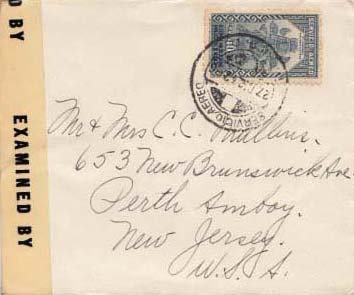 D BY
EXAMINED BY
SERVICIO AEREO
Mr & Mrs C.C. Mullins.
653 New Brunswick Ave.
Perth Amboy.
New Jersey.
U.S.A.